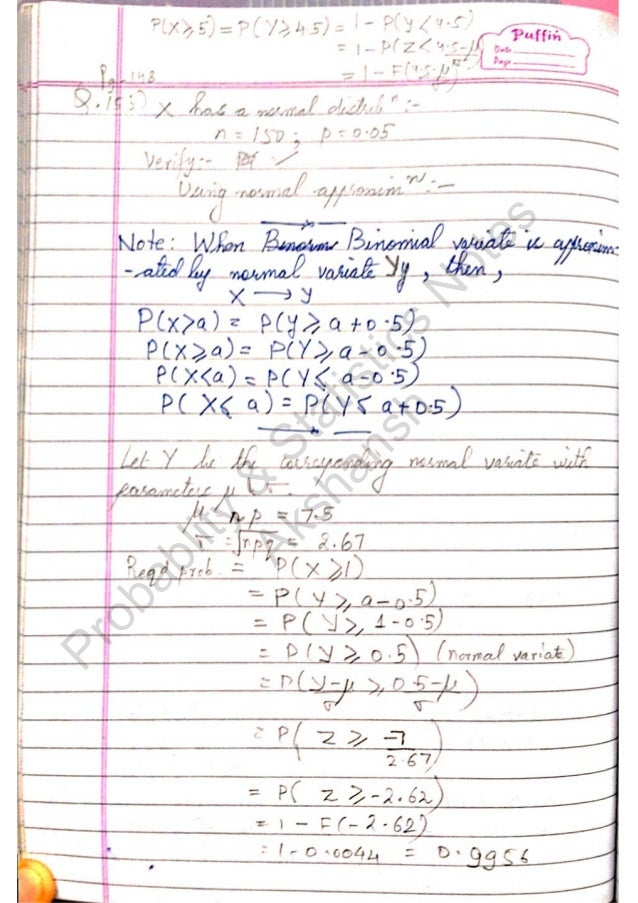 P(X⩾5) = P(Y⩾4.5) = 1 - P(Y<4.5)
= 1-P(Z<4.5-μ/σ)
= 1-F(4.5-μ/σ)
Puffin
Date
Page
Pg-148
Q.153) X has a normal distribⁿ :-
n = 150 ; p = 0.05
Verify:- ✓
Using normal approximⁿ :-
Note: When Binomial variate is approxim-
-ated by normal variate Y, then,
X → Y
P(X>a) = P(Y⩾ a+0.5)
P(X⩾a) = P(Y⩾ a-0.5)
P(X<a) = P(Y⩽ a-0.5)
P(X⩽ a) = P(Y⩽ a+0.5)
Let Y be the corresponding normal variate with
parameters μ & σ.
μ = np = 7.5
σ = √npq = 2.67
Reqd prob. = P(X⩾1)
= P(Y⩾ a-0.5)
= P(Y⩾ 1-0.5)
= P(Y⩾ 0.5) (normal variate)
= P(Y-μ/σ ⩾ 0.5-μ/σ)
= P(Z ⩾ -7/2.67)
= P( Z ⩾ -2.62)
= 1 - F(-2.62)
= 1-0.0044 = 0.9956
Probability & Statistics Notes
Akshansh